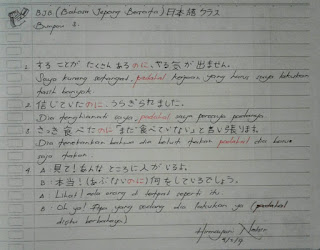 B.J.B. (Bahasa Jepang Bercerita) 日本語クラス
1. することがたくさんあるのに、やる気が出ません。
Saya kurang semangat, padahal kerjaan yang harus saya lakukan
masih banyak.
2. 信じていたのに、うらぎられました。
Dia mengkhianati saya, padahal saya percaya padanya.
3. さっき食べたのに「まだ食べていない」と言い張ります。
Dia menekankan bahwa dia belum makan padahal dia baru
saja makan.
4. A : 見て！あんなところに人がいるよ。
B : 本当！(あぶないのに) 何をしているでしょう。
A : Lihat! ada orang di tempat seperti itu.
B : Oh ya! Apa yang sedang dia lakukan ya (padahal
disitu berbahaya)